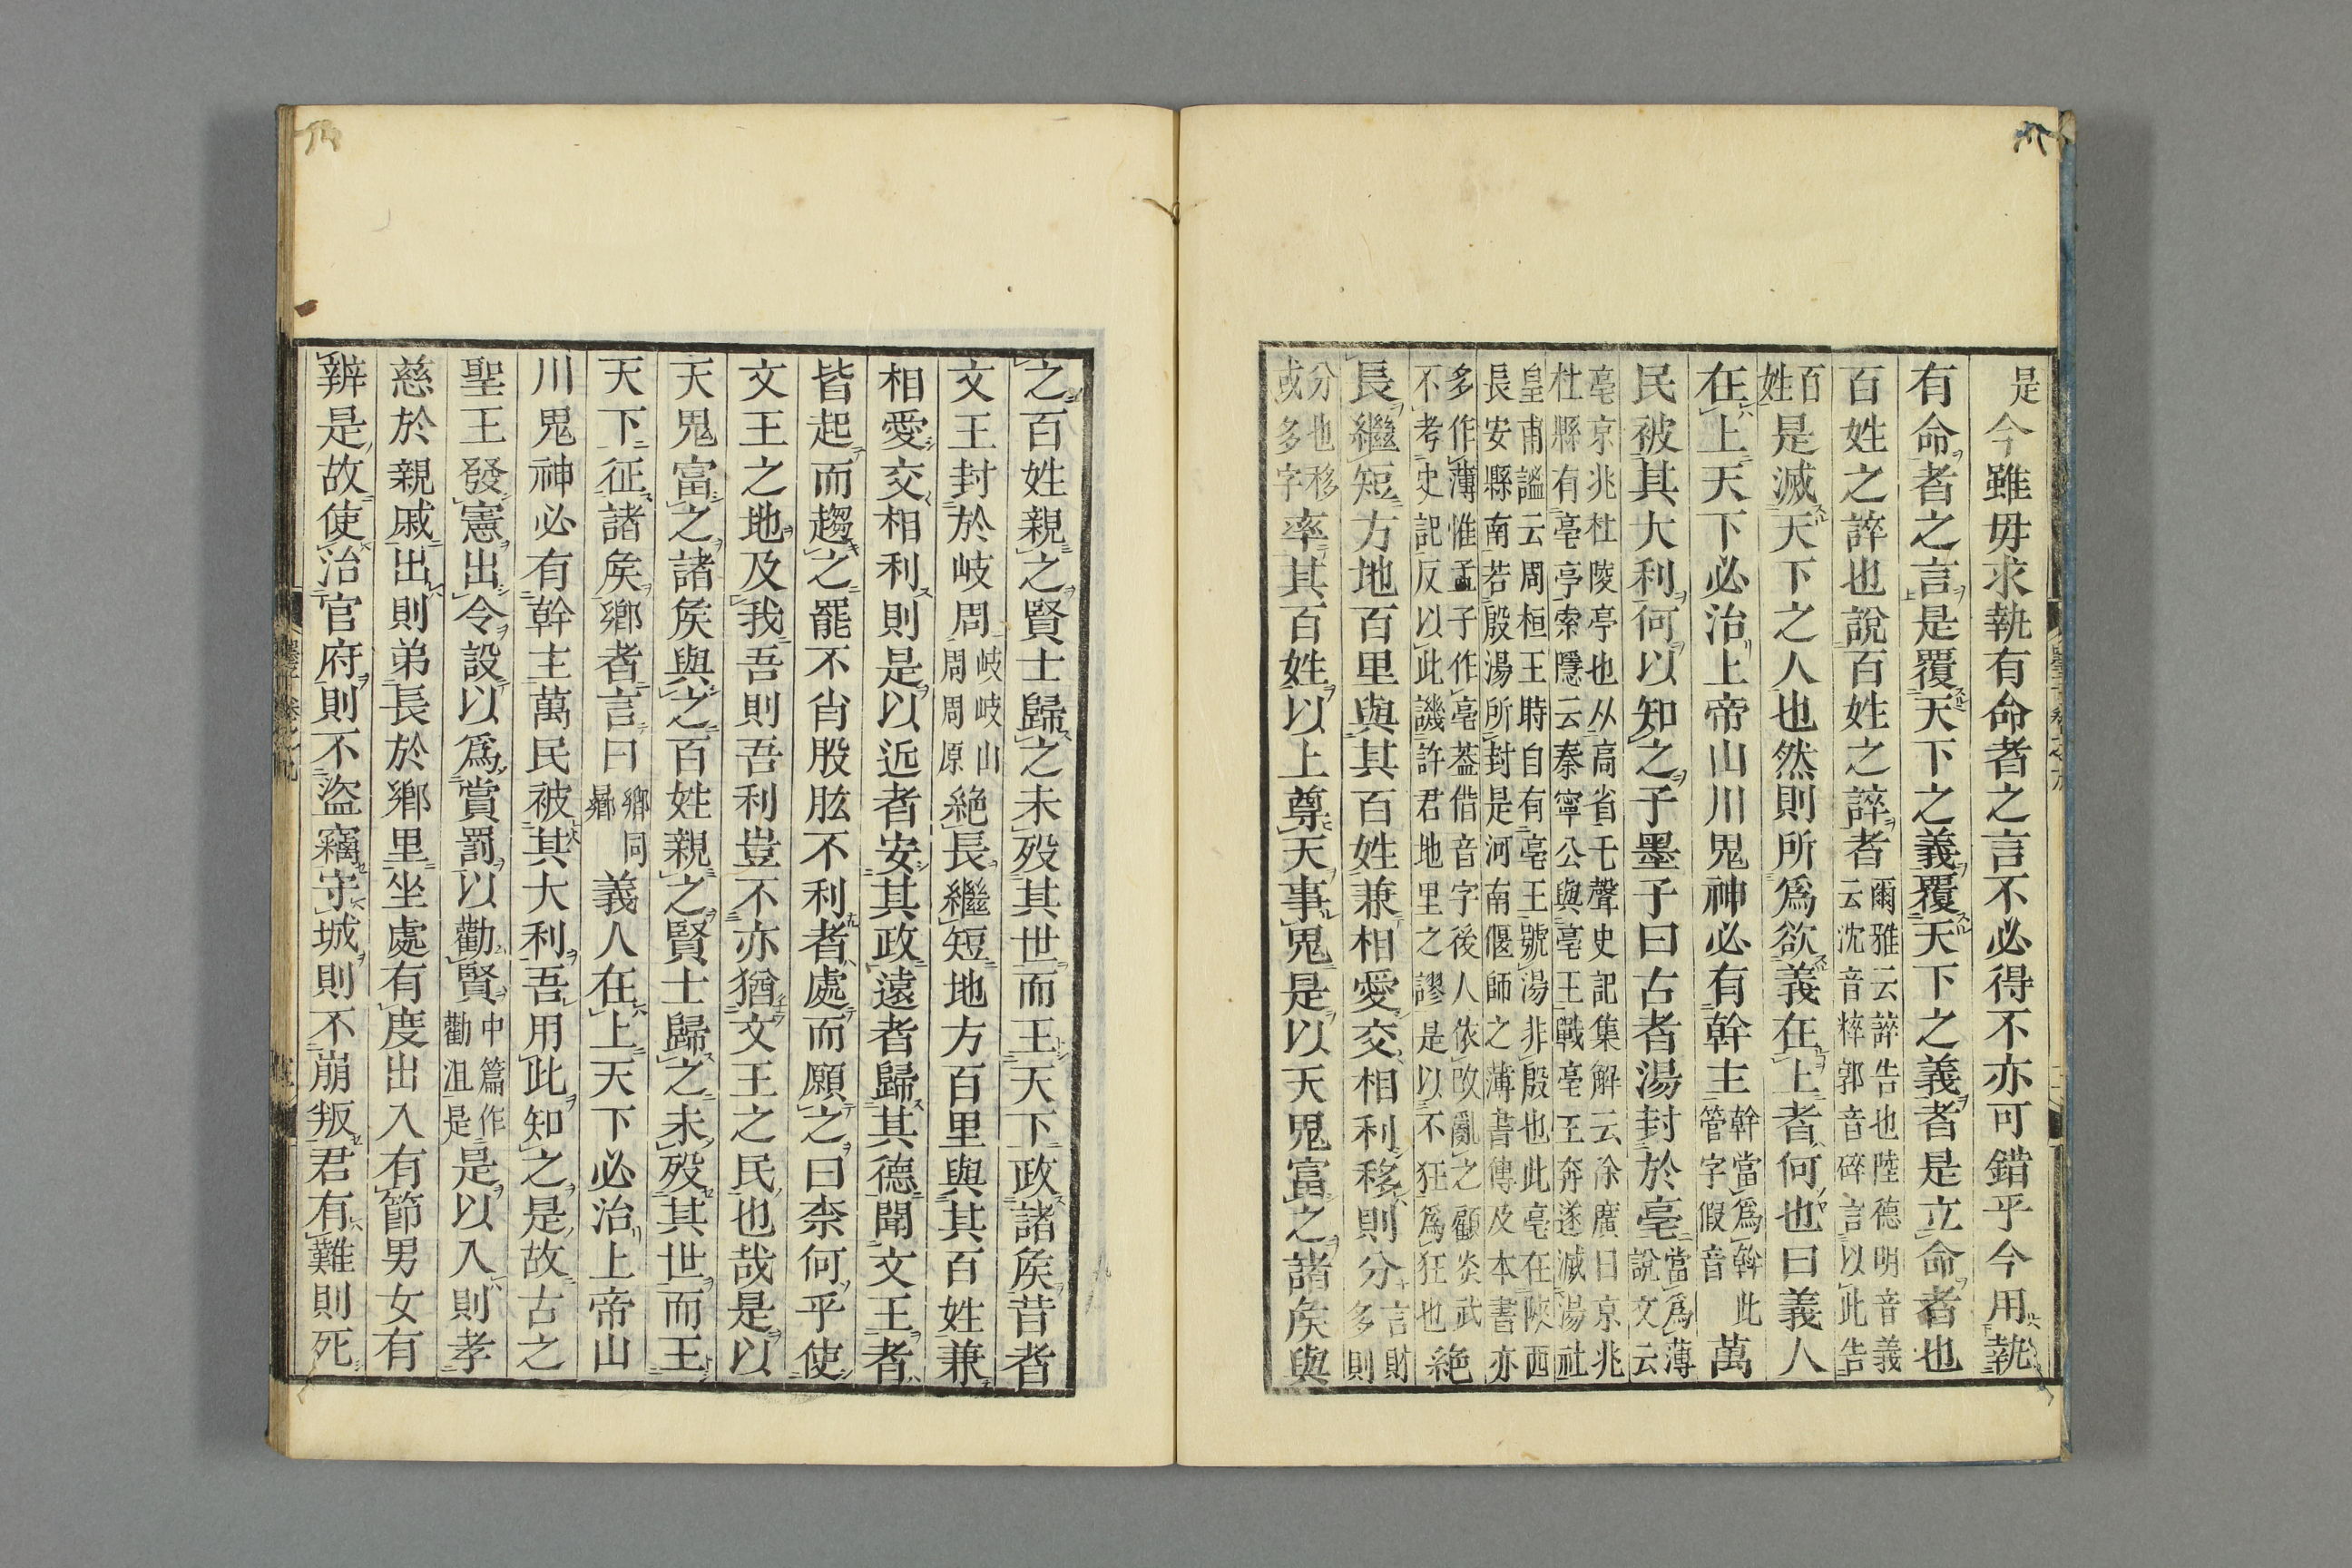 是今雖毋求執有命者之言不必得不亦可錯乎今用執
有命者之言是覆天下之義覆天下之義者是立命者也
百姓之誶也說百姓之誶者爾雅云誶告也陸德明音義云沈音粹郭音碎言以此告
百姓是滅天下之人也然則所爲欲義在上者何也曰義人
在上天下必治上帝山川鬼神必有幹主幹當爲斡此管字假音萬
民被其大利何以知之子墨子曰古者湯封於亳當爲薄說文云
亳京兆杜陵亭也从高省乇聲史記集解云徐廣曰京兆
杜縣有亳亭索隱云秦寧公與亳王戰亳王奔遂滅湯社
皇甫謐云周桓王時自有亳王號湯非殷也此亳在陝西
長安縣南若殷湯所封是河南偃師之薄書傳及本書亦
多作薄惟孟子作亳葢借音字後人依改亂之顧炎武
不考史記反以此譏許君地里之謬是以不狂爲狂也絶
長繼短方地百里與其百姓兼相愛交相利移則分言財多則
分也移或多字率其百姓以上尊天事鬼是以天鬼富之諸矦與
之百姓親之賢士歸之未歿其世而王天下政諸矦昔者
文王封於岐周岐岐山周周原絶長繼短地方百里與其百姓兼
相愛交相利則是以近者安其政遠者歸其德聞文王者
皆起而趨之罷不肖股肱不利者處而願之曰柰何乎使
文王之地及我吾則吾利豈不亦猶文王之民也哉是以
天鬼富之諸矦與之百姓親之賢士歸之未歿其世而王
天下征諸矦鄉者言曰鄉同曏義人在上天下必治上帝山
川鬼神必有幹主萬民被其大利吾用此知之是故古之
聖王發憲出令設以爲賞罰以勸賢中篇作勸沮是是以入則孝
慈於親戚出則弟長於鄉里坐處有度出入有節男女有
辨是故使治官府則不盜竊守城則不崩叛君有難則死